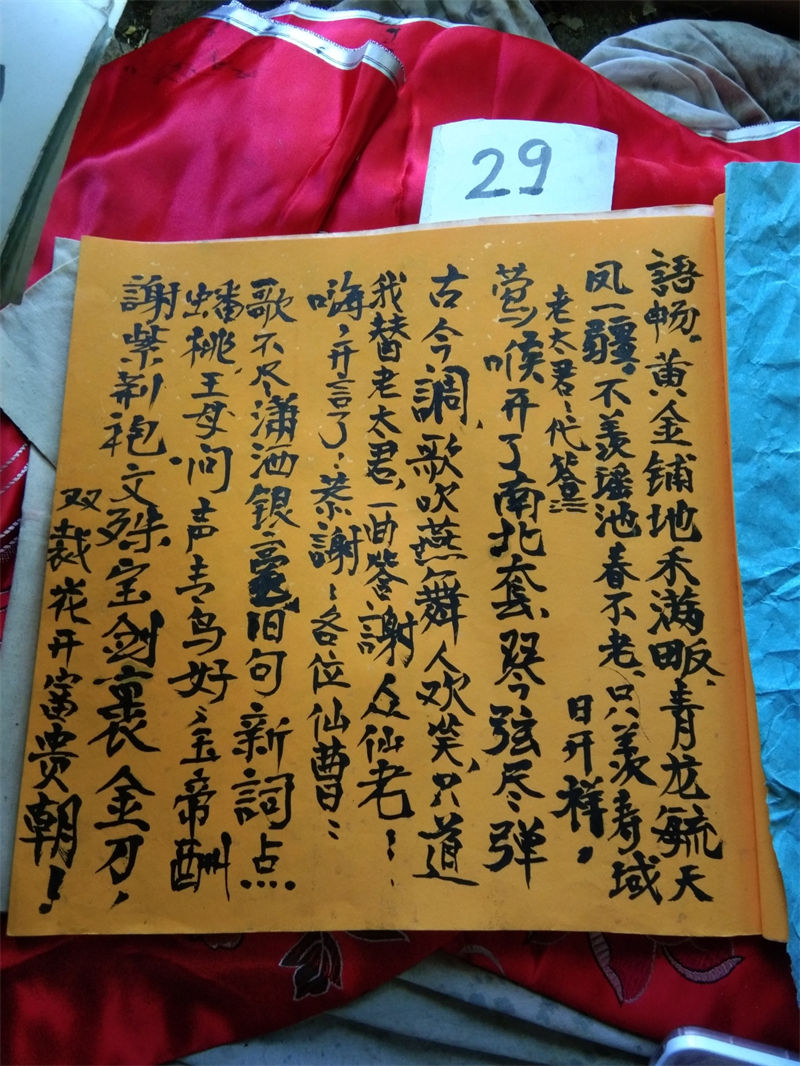 29
語畅。黄金铺地禾满畈，青龙毓天
凤一疆。不羡瑶池春不老，只羡寿域
日开祥。
老太君：代答：
莺喉开了南北套，琴弦尽尽弹
古今調，歌吹燕舞人欢笑，只道
我替老太君，一曲答謝众仙老！
嗨，开言了，恭謝：各位仙曹：
歌不尽潇洒银毫，旧句新詞点
蟠桃，王母问声青鸟好：玉帝酬
謝紫荆袍，文殊宝剑裹金刀，
双栽花开富贵朝！